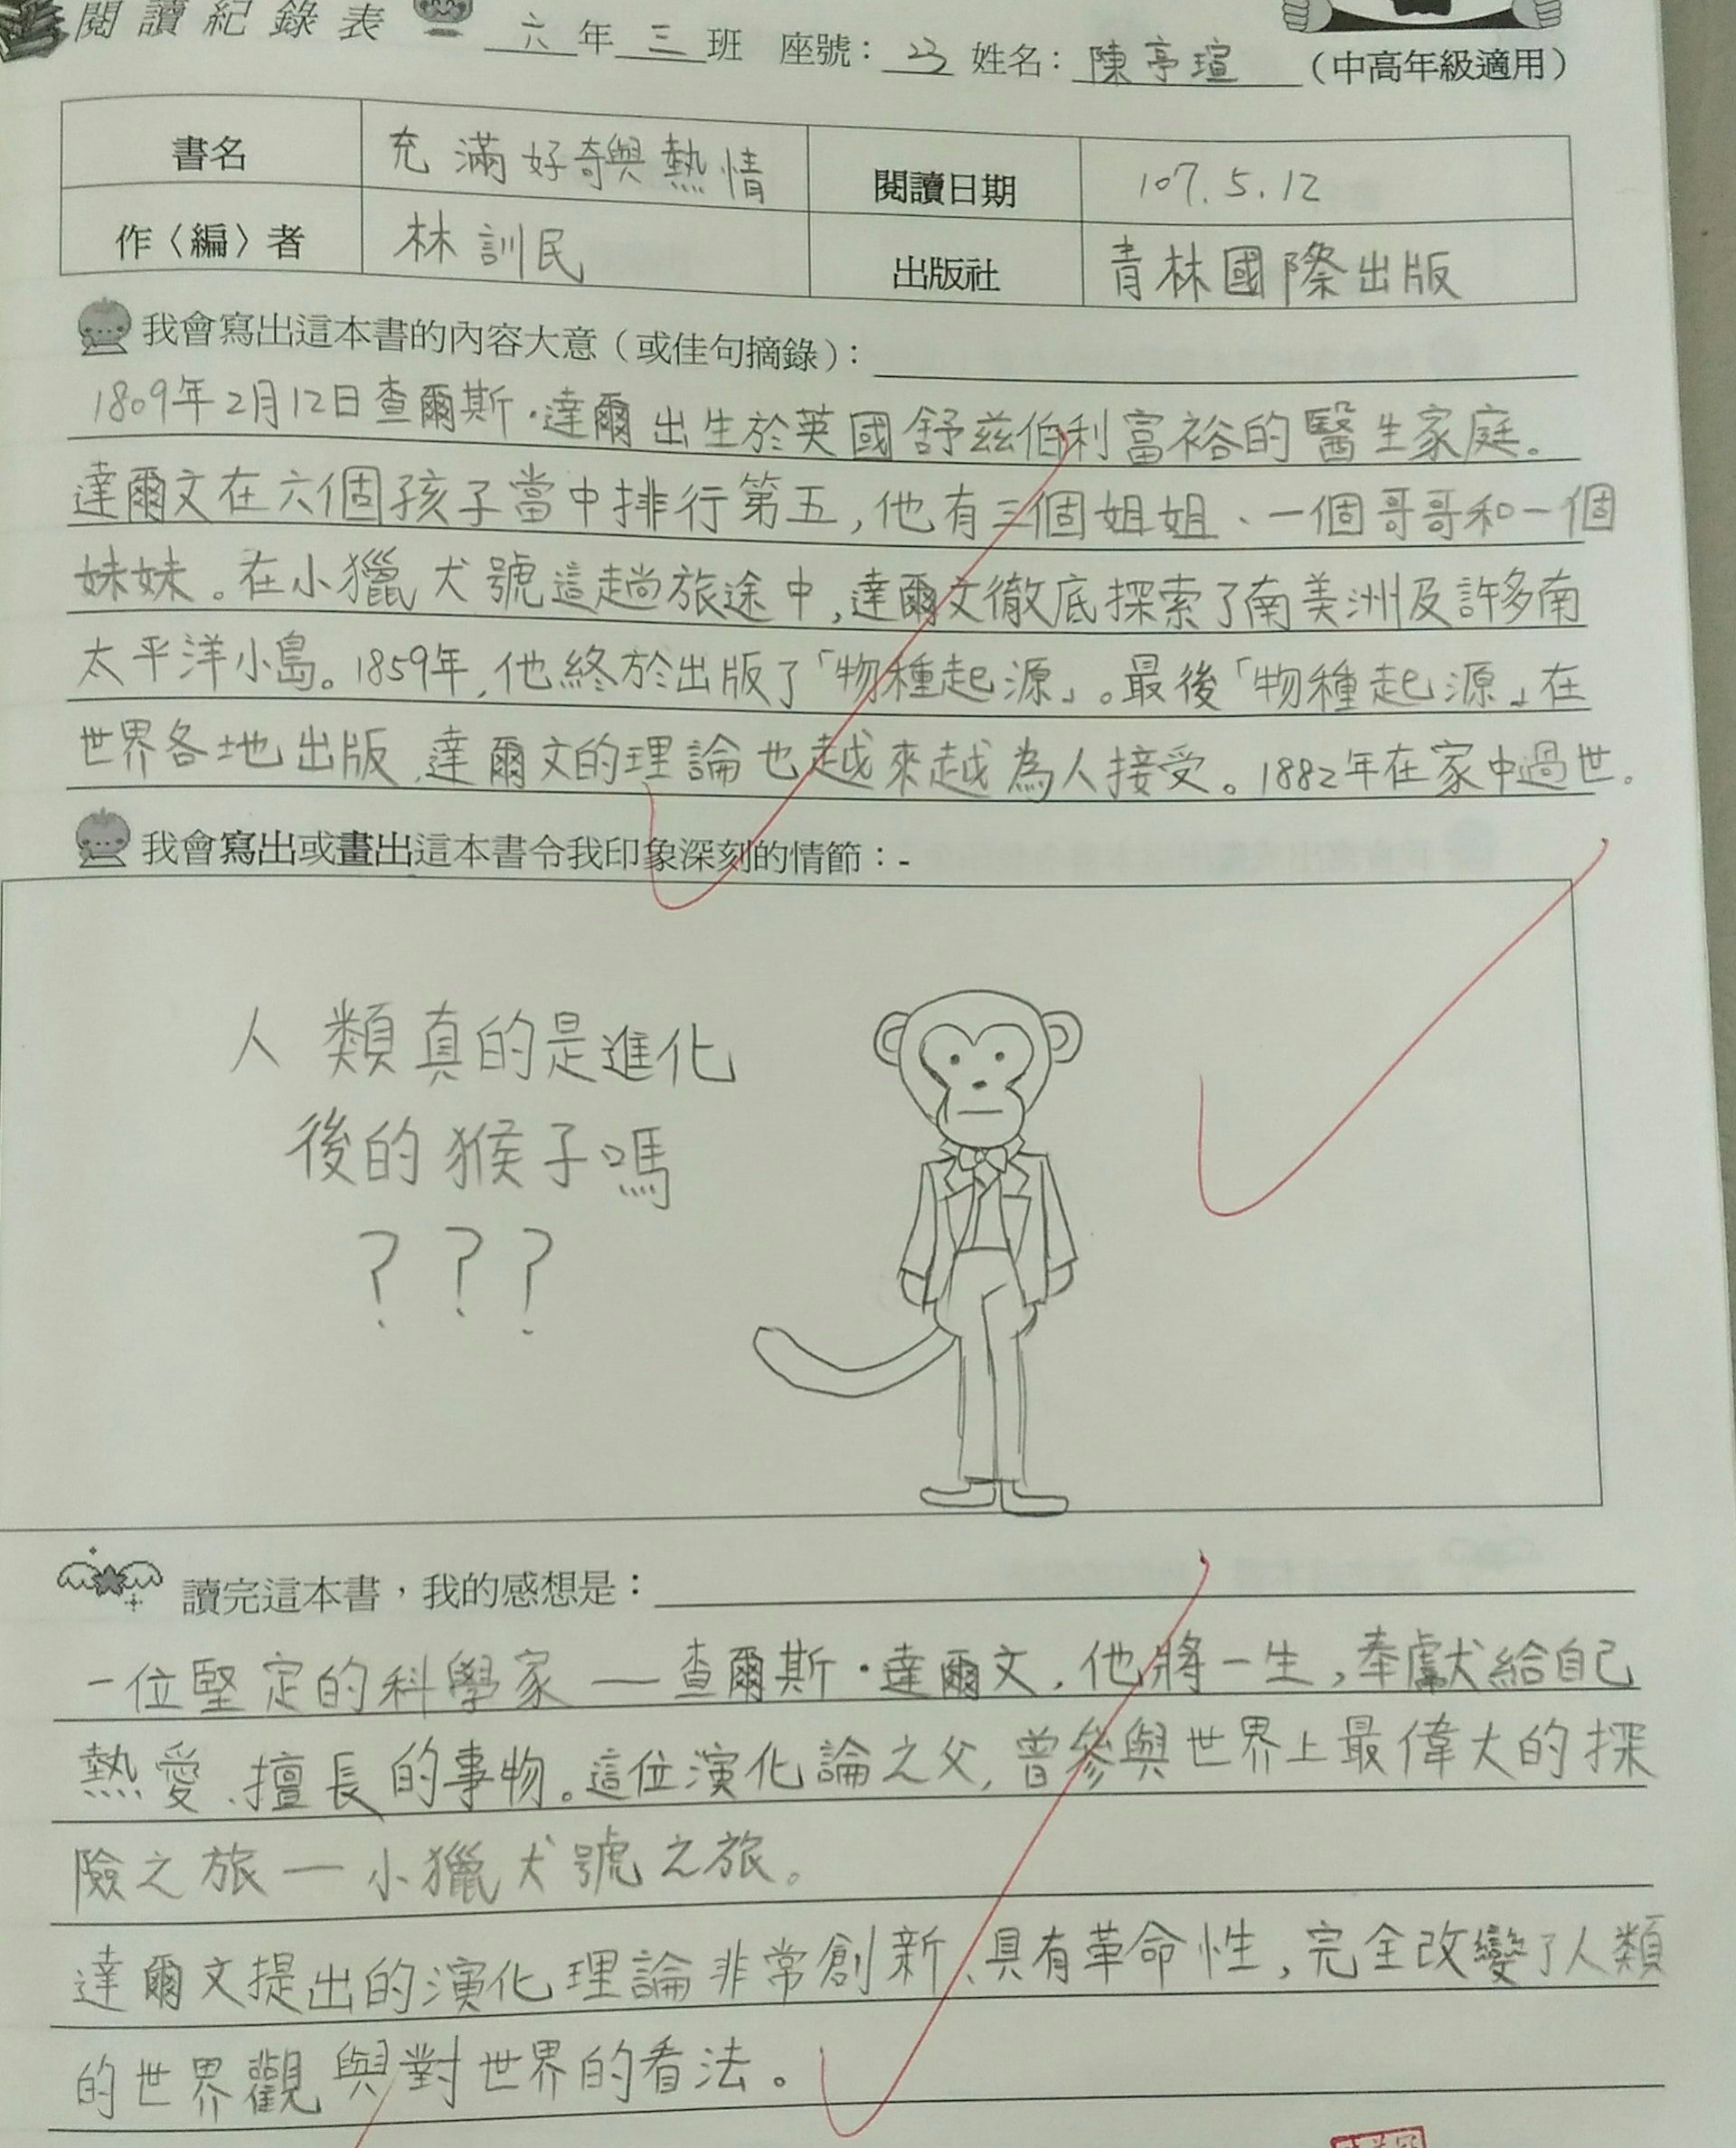 閱讀紀錄表 六年三班 座號：23 姓名：陳亭瑄 （中高年級適用）
書名 充滿好奇與熱情 閱讀日期 107.5.12
作〈編〉者 林訓民 出版社 青林國際出版
我會寫出這本書的內容大意（或佳句摘錄）：
1809年2月12日查爾斯·達爾出生於英國舒茲伯利富裕的醫生家庭。
達爾文在六個孩子當中排行第五，他有三個姐姐、一個哥哥和一個
妹妹。在小獵犬號這趟旅途中，達爾文徹底探索了南美洲及許多南
太平洋小島。1859年，他終於出版了「物種起源」。最後「物種起源」在
世界各地出版，達爾文的理論也越來越為人接受。1882年在家中過世。
我會寫出或畫出這本書令我印象深刻的情節：-
人類真的是進化
後的猴子嗎
？？？
讀完這本書，我的感想是：
一位堅定的科學家——查爾斯·達爾文，他將一生，奉獻給自己
熱愛、擅長的事物。這位演化論之父，曾參與世界上最偉大的探
險之旅—小獵犬號之旅。
達爾文提出的演化理論非常創新、具有革命性，完全改變了人類
的世界觀與對世界的看法。